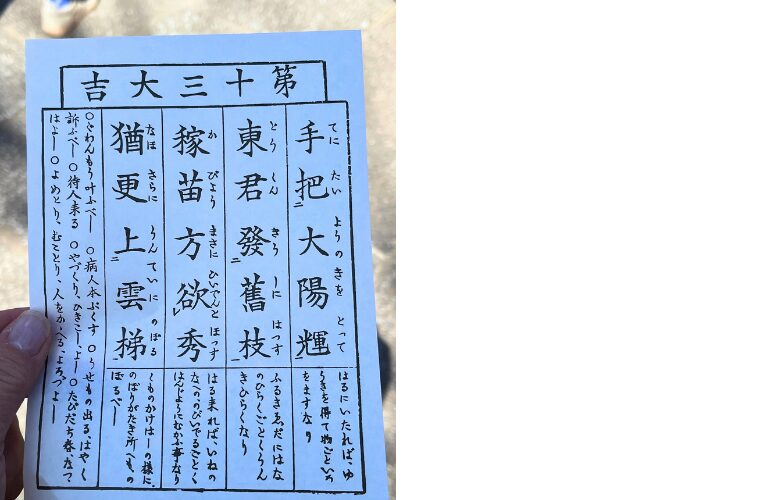 第十三大吉
てに たい ようのきを とって
手把二大陽輝一
はるにいたれば、ゆ
うきを得て物ごといろ
をますなり
とう くん きう しに はつす
東君發二舊枝一
ふるきゑだにはな
のひらくごとくうん
きひらくなり
か びよう まさに ひいでんと ほつす
稼苗方欲レ秀
はる来れば、いねの
なへの、のびいでるごとく
はんじようにむかふ事なり
なほ さらに うんていに のぼる
猶更上二雲梯一
くものかけはしの様に、
のぼりがたき所へも、の
ぼるべし
○ぐわんもう叶ふべし ○病人本ぷくす ○うせもの出る、はやく
訴ふべし ○待人来る ○やづくり、ひきこし、よし ○たびだち春、なつ
はよし ○よめとり、むことり、人をかゝへる、よろづよし